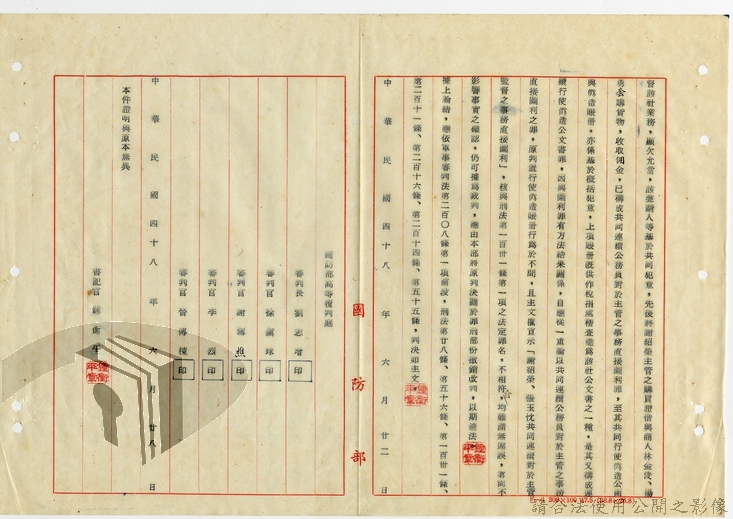 督該社業務，顯欠允當，該聲請人等基於共同犯意，先後將謝紹榮主管之購買證借與商人林金陵、湯
勇公購貨物，收取佣金，已構成共同連續公務員對於主管之事務直接圖利罪，至其共同行使偽造公
與偽造賬册，亦係基於概括犯意，上項賬册既供作稅捐處稽查毫為該社公文書之一種，是其又構成連
續行使偽造公文書罪，因與圖利罪有方法結果關係，自應從一重論以共同連續公務員對於主管之事務
直接圖利之罪，原判置行使偽造賬册行為於不問，且主文僅宣示「謝紹榮、張玉忱共同連續對於主管
監督之事務直接圖利」，核與刑法第一百卅一條第一項之法定罪名，不相符合，均難謂無違誤，第尚不
影響事實之確認，仍可據為裁判，應由本部將原判決關於罪刑部份撤銷改判，以期適法。
據上論結，應依軍事審判法第二百〇八條第一項前段，刑法第廿八條、第五十六條、第一百卅一條、
第二百十一條、第二百十六條、第二百十四條、第五十五條，判決如主文。
中華民國四十八年六月廿二日
國防部
國防部高等覆判庭
審判長 劉志增 印
審判官 徐 球 印
審判官 謝 印
審判官 李 烈 印
審判官 曾傳棟 印
中華民國四十八年六月廿八日
本件證明與原本無異
書記官
請合法使用公開之影像